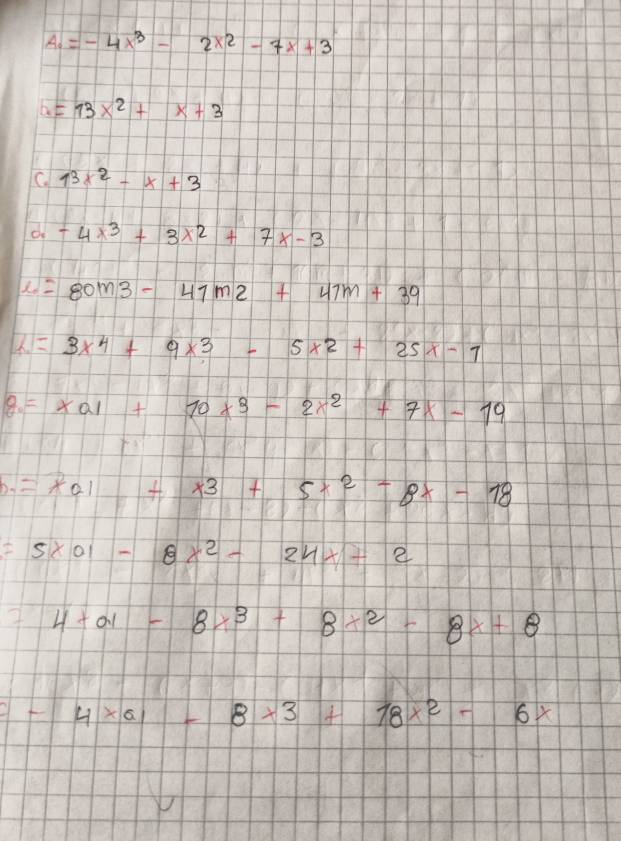 A. = - 4x³ - 2x² - 7x + 3
b. = 13x² + x + 3
c. 13x² - x + 3
d. - 4x³ + 3x² + 7x - 3
e. = 80m3 - 41m2 + 41m + 39
= 3x4 + 9x3 - 5x2 + 25x - 1
g. = xal + 10x3 - 2x² + 7x - 19
h. = xal + x3 + 5x² - 8x - 18
= 5xal - 8x² - 24x + 2
= 4xal - 8x³ + 8x² - 8x + 8
= - 4xal - 8x3 + 18x² - 6x